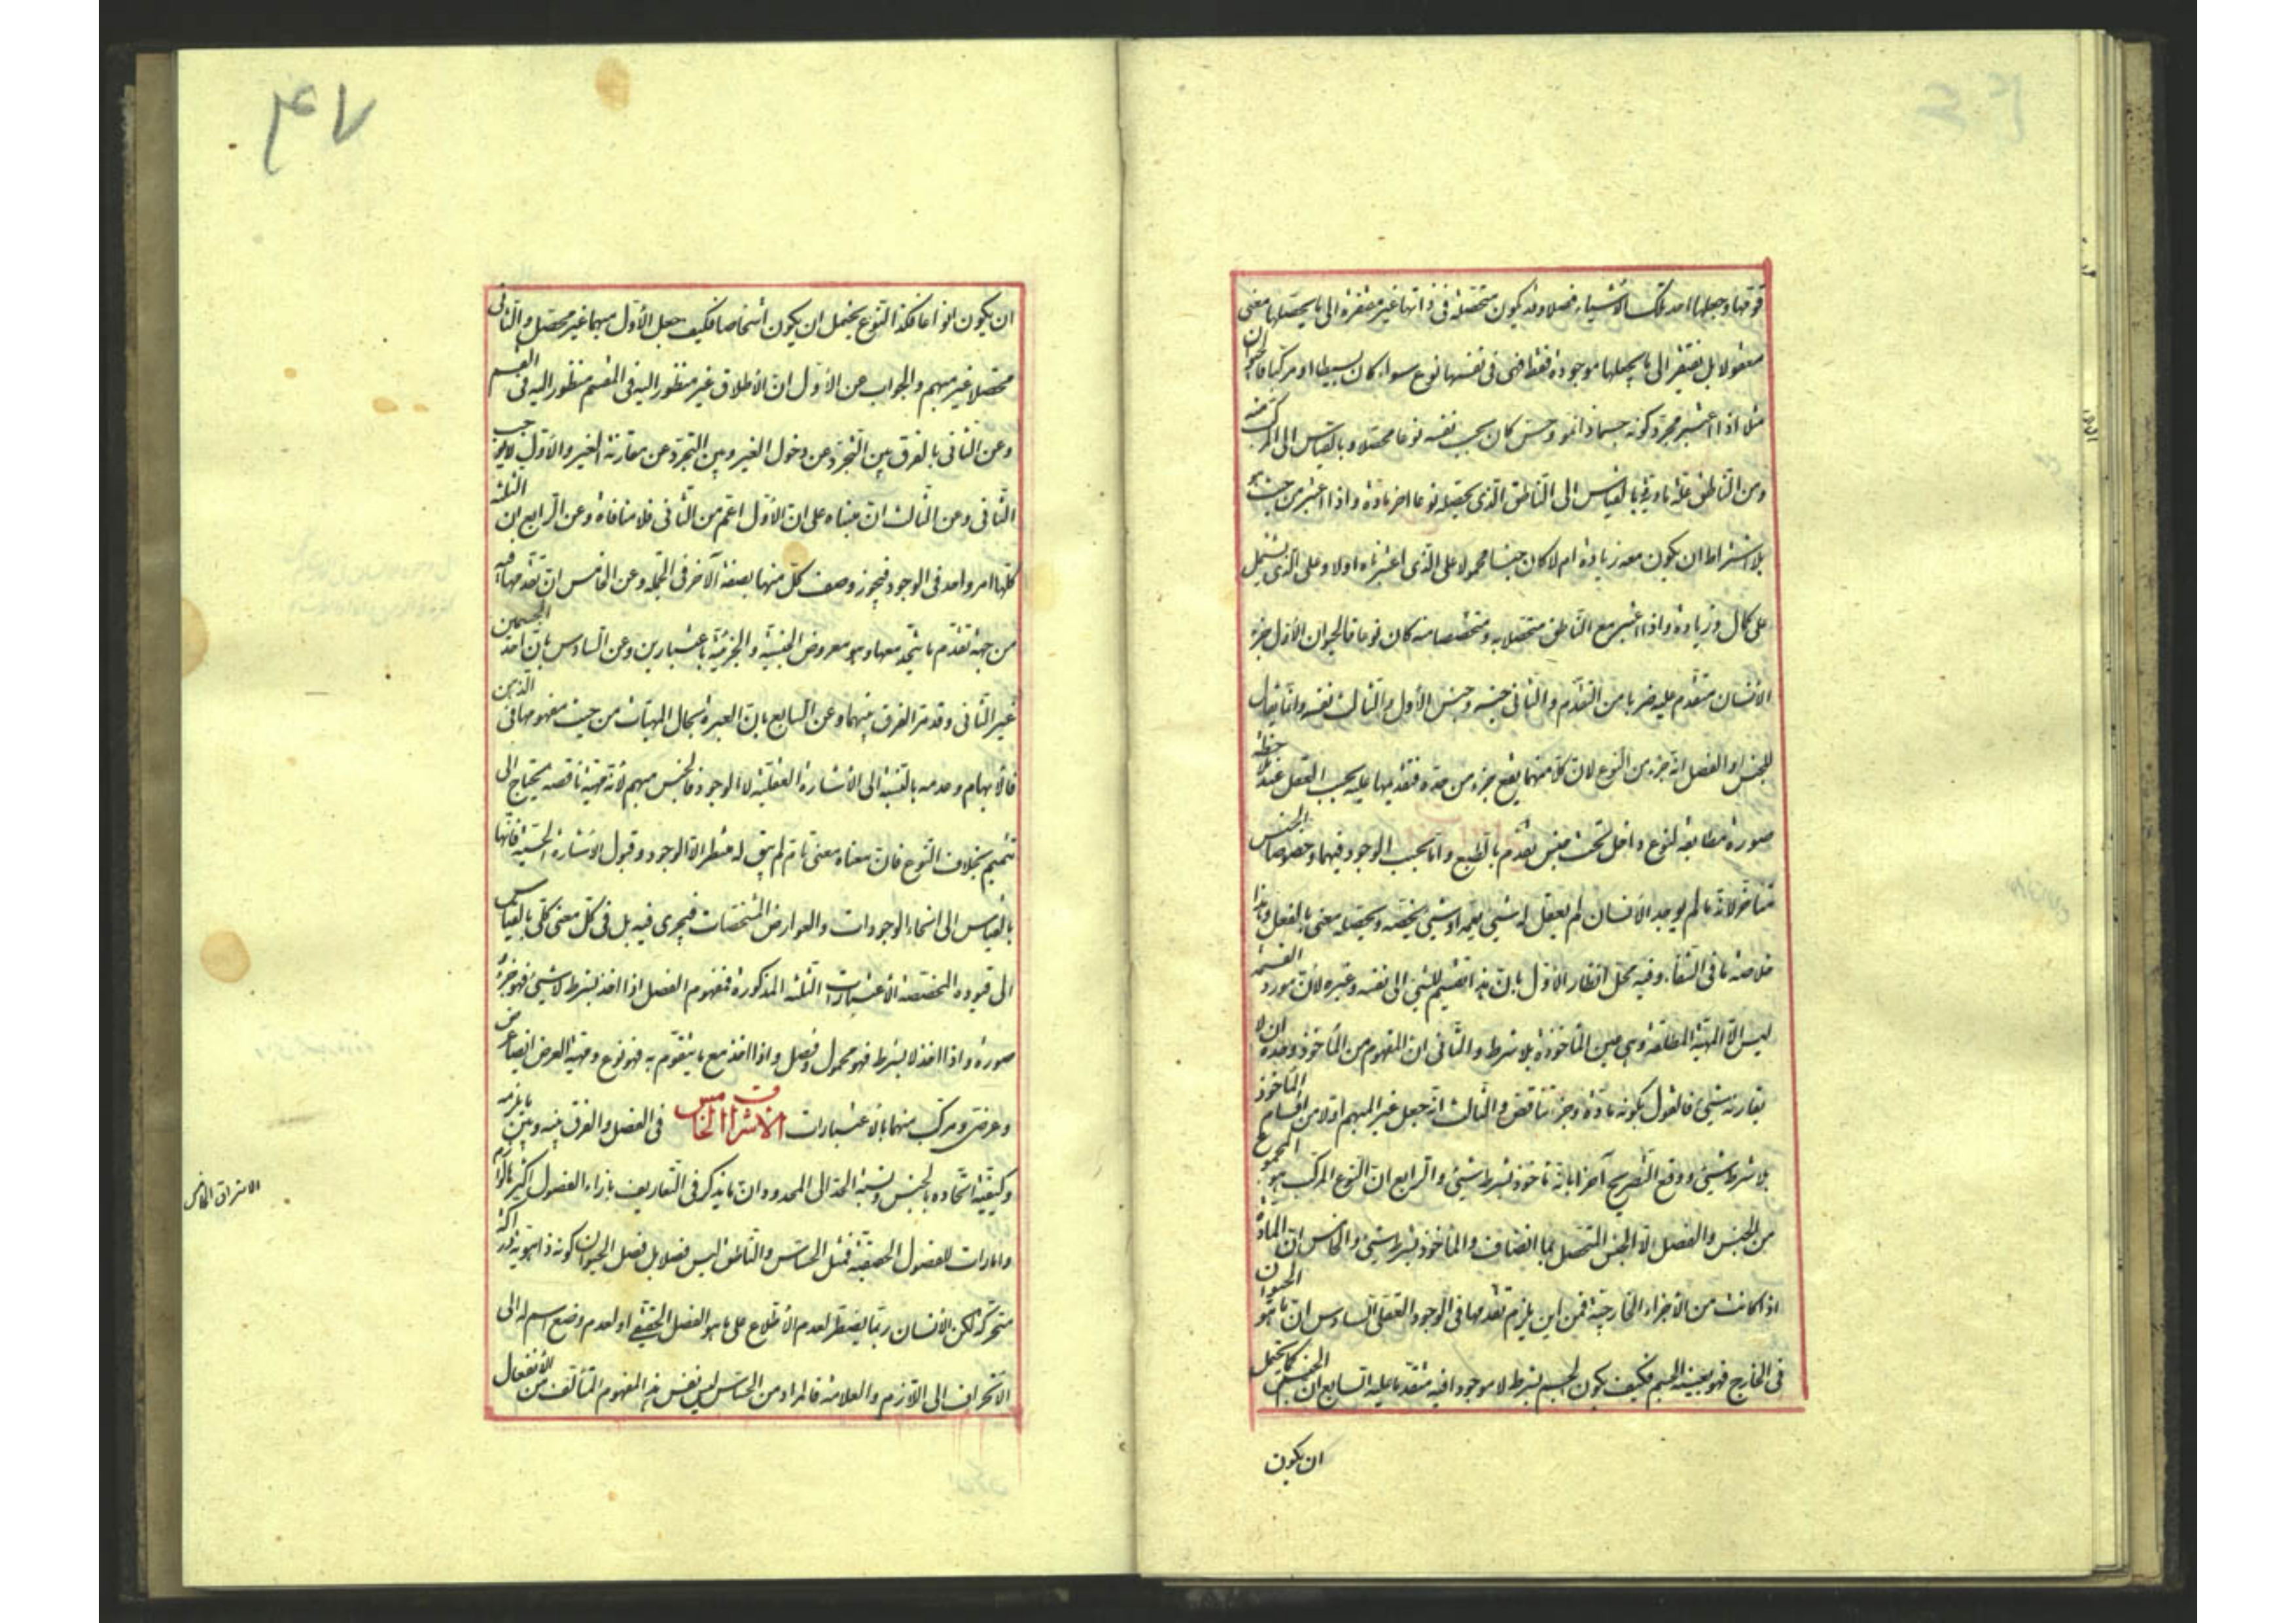 قوتها وجعلها احد تلك الاشياء فصلا وقد يكون متحصلة فى ذاتها غير مفتقرة الى ما يحصلها معنى
معقولا بل يفتقر الى ما يجعلها موجودة فقط فهى فى نفسها نوع سواء كان بسيطا او مركبا فالحيوان
مثلا اذا اعتبر مجرد كونه جسما ذا نمو وحس كان بحسب نفسه نوعا محصلا وبالقياس الى المركب منه
ومن الناطق علة مادية بالقياس الى الناطق الذى يحصله نوعا اخر مادة واذا اعتبر من حيث هو
بلا اشتراط ان يكون معه زيادة ام لا كان جنسا محمولا على الذى اعتبرناه اولا وعلى الذى يشتمل
على كمال وزيادة واذا اعتبر مع الناطق متحصلا به ومتخصصا منه كان نوعا فالحيوان الاول جزء
الانسان متقدم عليه ضربا من التقدم والثانى جنسه وجنس الاول والثالث نفسه وانما يقال
للجنس او الفصل انه جزء من النوع لان كلا منهما يقع جزء من حده فتقدمهما عليه بحسب العقل عند ملاحظة
صورة مطابقة لنوع داخل تحت جنس تقدم بالطبع واما بحسب الوجود فيهما وخصوصا الجنس
متاخر لانه ما لم يوجد الانسان لم يعقل له شيى يعمه او شيى يخصه ويحصله معنى بالفعل وهذا
خلاصة ما فى الشفاء وفيه محل انظار الاول بان هذا تقسيم للشيئ الى نفسه وغيره لان مورد القسمة
ليس الا المهية المطلقة وهى عين الماخوذة بلا شرط والثانى ان المفهوم من الماخوذ وحده ان لا
يقارنه شيئ فالقول بكونه مادة وجزء تناقض والثالث انه جعل غير المبهم اولا من اقسام الماخوذ
بلا شرط شيئ ووقع التصريح آخرا بانه ماخوذ بشرط شيئ والرابع ان النوع المركب هو المجموع
من الجنس والفصل لا الجنس المتحصل بما انضاف والماخوذ بشرط شيئ والخامس ان المادة
اذا كانت من الاجزاء الخارجية فمن اين يلزم تقدمها فى الوجود العقلى السادس ان ما هو الحيوان
فى الخارج فهو بعينه الجسم فكيف يكون الجسم بشرط لا موجودا فيه متقدما عليه السابع ان الجنس كما يحتمل
ان يكون
۴۷
ان يكون انواعا فكذا النوع يحتمل ان يكون اشخاصا فكيف جعل الاول مبهما غير محصل والثانى
محصلا غير مبهم والجواب عن الاول ان الاطلاق غير منظور اليه فى المقسم منظور اليه فى القسم
وعن الثانى بالفرق بين التجرد عن دخول الغير وبين التجرد عن مقارنة الغير والاول لا يوجب
الثانى وعن الثالث ان مبناه على ان الاول اعم من الثانى فلا منافاة وعن الرابع ان الثلثة
كلها امر واحد فى الوجود فيجوز وصف كل منها بصفة الآخر فى الجملة وعن الخامس ان تقدمها فيه
من جهة تقدم ما يتحد معها وهو معروض الجنسية والجزئية باعتبارين وعن السادس بان احد الجسمين
غير الثانى وقد مر الفرق بينهما وعن السابع بان العبرة بحال المهيات من حيث مفهومها فى الذهن
فالابهام وعدمه بالنسبة الى الاشارة العقلية لا الوجود فالجنس مبهم لانه مهية ناقصة يحتاج الى
تتميم بخلاف النوع فان معناه معنى تام لم يبق له منتظر الا الوجود وقبول الاشارة الحسية فانها
بالقياس الى انحاء الوجودات والعوارض المشخصات فيجرى فيه بل فى كل معنى كلى بالقياس
الى قيوده المخصصة الاعتبارات الثلثة المذكورة فمفهوم الفصل اذا اخذ بشرط لا شيئ فهو جزء و
صورة واذا اخذ لا بشرط فهو محمول وفصل واذا اخذ مع ما يتقوم به فهو نوع ومهية العرض ايضا عرض
وعرضى ومركب منهما بالاعتبارات الاشراق الخامس فى الفصل والفرق بينه وبين ما يلزمه
وكيفية اتحاده بالجنس ونسبة الحد الى المحدود ان ما يذكر فى التعاريف بازاء الفصول اكثرها لوازم
وامارات للفصول الحقيقية فمثل الحساس والناطق ليس فصلا بل فصل الحيوان كونه ذا هوية دراكة
متحركة لكن الانسان ربما يضطر لعدم الاطلاع على ما هو الفصل الحقيقى او لعدم وضع اسم له الى
الانحراف الى اللازم والعلامة فالمراد من الحساس ليس نفس هذا المفهوم المتألف من الانفعال
الاشراق الخامس